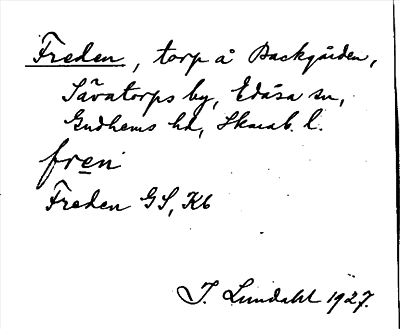 Freden, torp å Backgården,
Sävatorps by, Edåsa sn,
Gudhems hd, Skarab. l.
fren
Freden GS, Kb
I. Lundahl 1927.